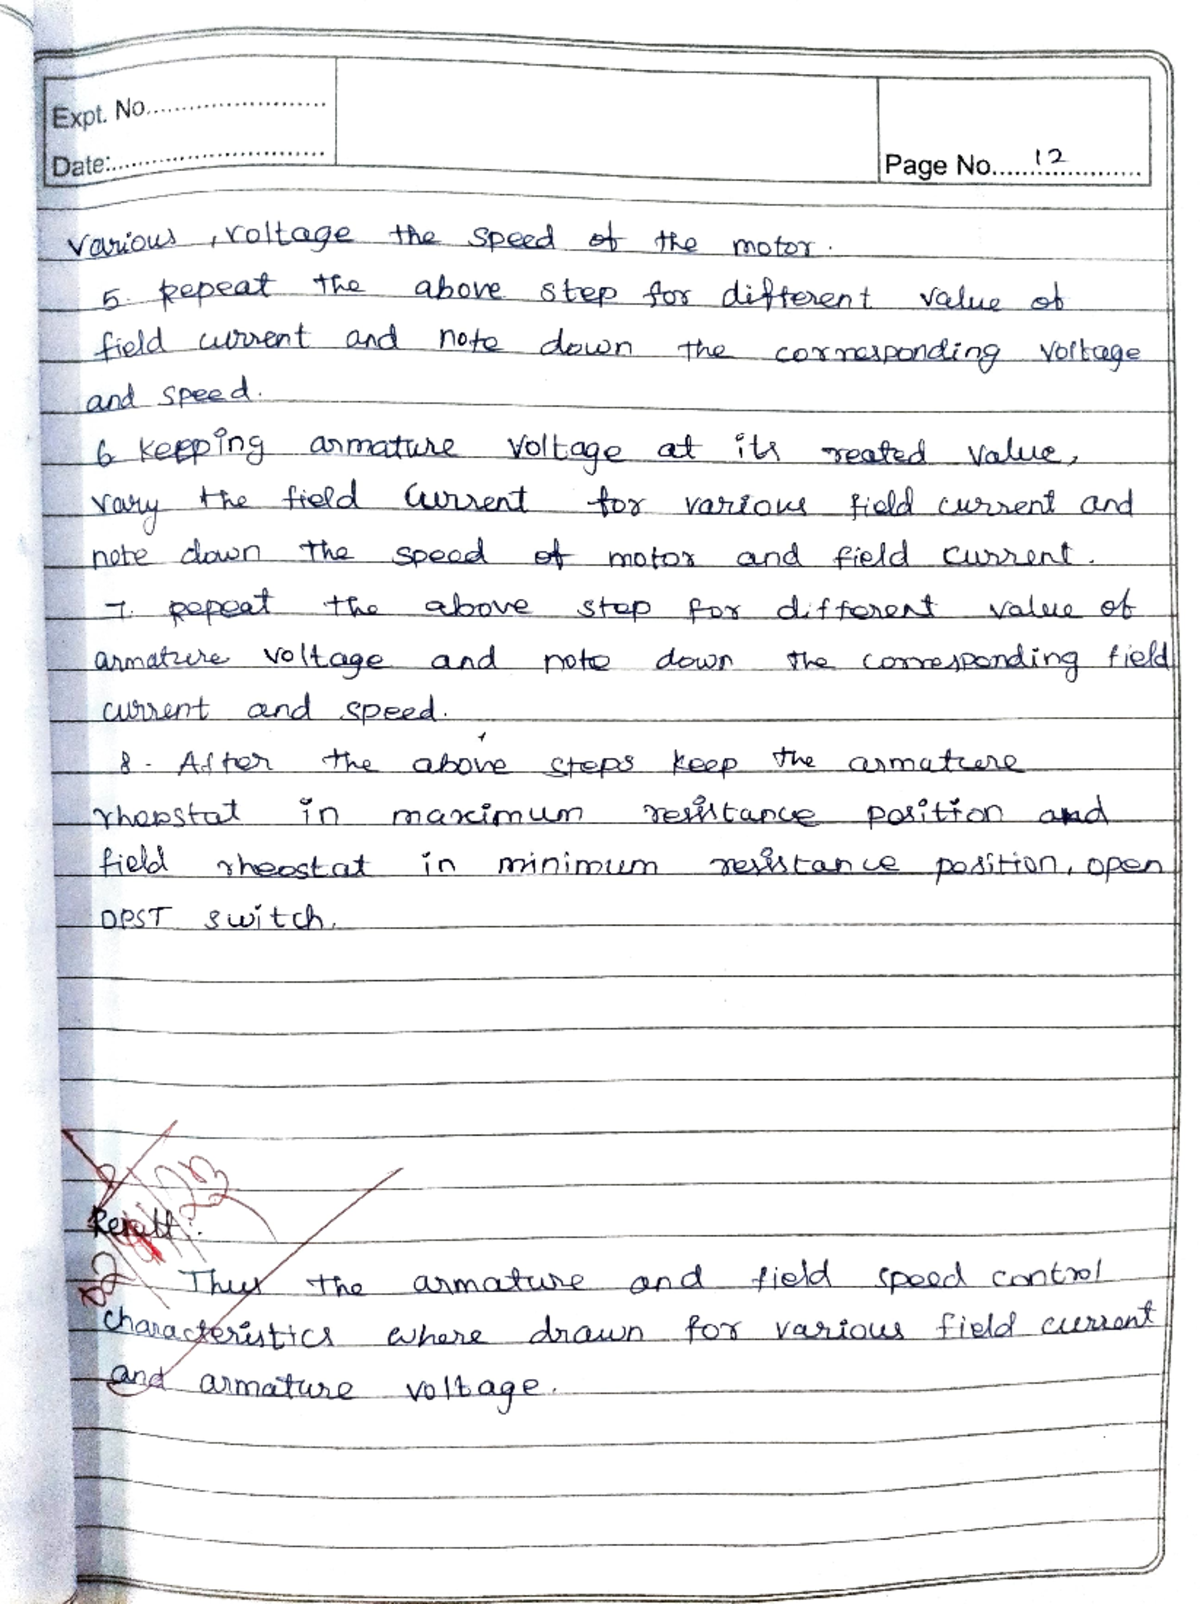 Expt. No.
Date:
Page No. 12
various, voltage the speed of the motor.
5. Repeat the above step for different value of
field current and note down the corresponding voltage
and speed.
6 Keeping armature voltage at its reated value,
vary the field current for various field current and
note down the speed of motor and field current.
7. Repeat the above step for different value of
armature voltage and note down the corresponding field
current and speed.
8. After the above steps keep the armature
rheostat in maximum resistance position and
field rheostat in minimum resistance position, open
DPST switch.
Result:
Thus the armature and field speed control
characteristics where drawn for various field current
and armature voltage.